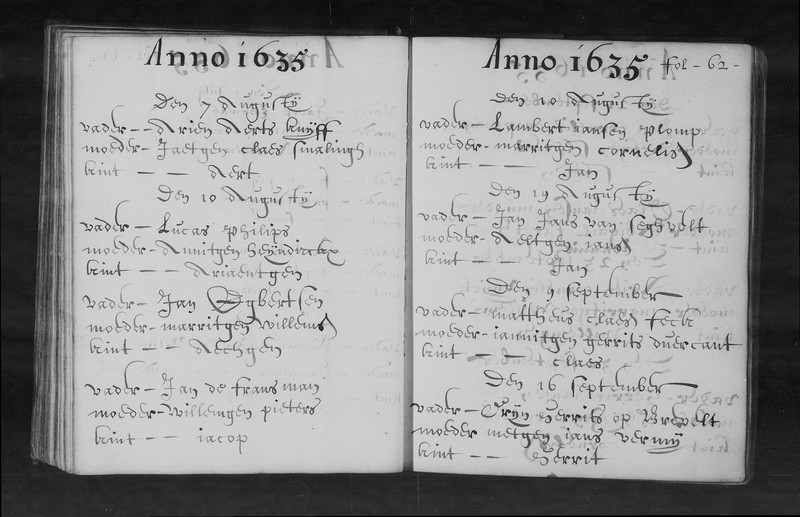 Anno 1635
Den 7 Augusty
vader - - Arien Aerts knyff
moeder - Jaetgen claes smalingh
kint - - - Aert
Den 10 Augusty
vader - Lucas philips
moeder - Annitgen heyndirckx
kint - - Ariaentgen
vader - Jan Egbertsen
moeder - marritgen willems
kint - - Aechgen
vader - Jan de fransman
moeder - willemgen pieters
kint - - iacop
Anno 1635 fol - 62 -
Den 10 Augusty
vader - Lambert iansen plomp
moeder - marritgen cornelis
kint - - - Jan
Den 19 Augusty
vader - Jan Jans van seghvelt
moeder - Aeltgen ians
kint - - - Jan
Den 9 september
vader - mattheus claes
moeder - iannitgen gerrits duercant
kint - - - claes
Den 16 september
vader - Gerrits op
moeder metgen ians vermy
kint - - Gerrit